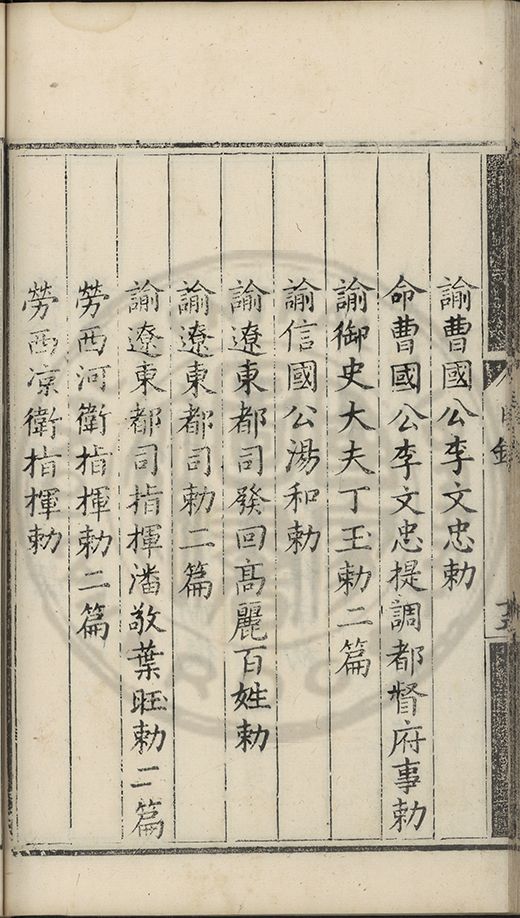 諭曹國公李文忠勅
命曹國公李文忠提調都督府事勅
諭御史大夫丁玉勅二篇
諭信國公湯和勅
諭遼東都司發回高麗百姓勅
諭遼東都司勅二篇
諭遼東都司指揮潘敬葉旺勅二篇
勞西河衛指揮勅二篇
勞西凉衛指揮勅